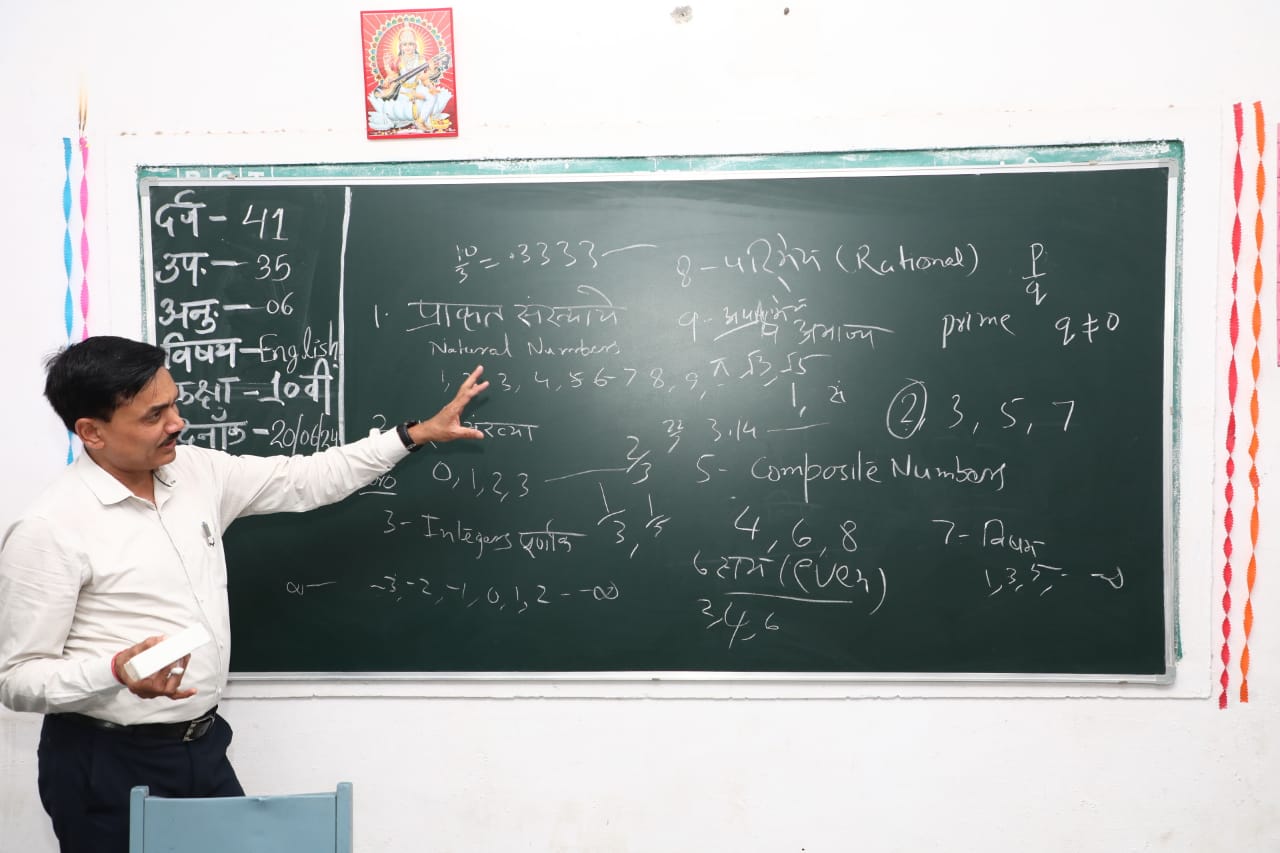 दर्ज - 41
उप. - 35
अनु. - 06
विषय - English
कक्षा - 10वी
दिनाँक - 20/06/24
10/3 = .3333
1. प्राकृत संख्याये
Natural Numbers
1, 3, 4, 5 6 7 8, 9,
2 संख्या
0, 1, 2, 3
2/3
3 - Integers पूर्णांक
1/3, 1/5
∞ -3, -2, -1, 0, 1, 2 - - ∞
8 - परिमेय (Rational)
p/q
9 - अभाज्य
prime q ≠ 0
π √3, √5
1,
2, 3, 5, 7
22/7 3.14
5 - Composite Numbers
4, 6, 8
6 सम (even)
2, 4, 6
7 - विषम
1, 3, 5, - ∞